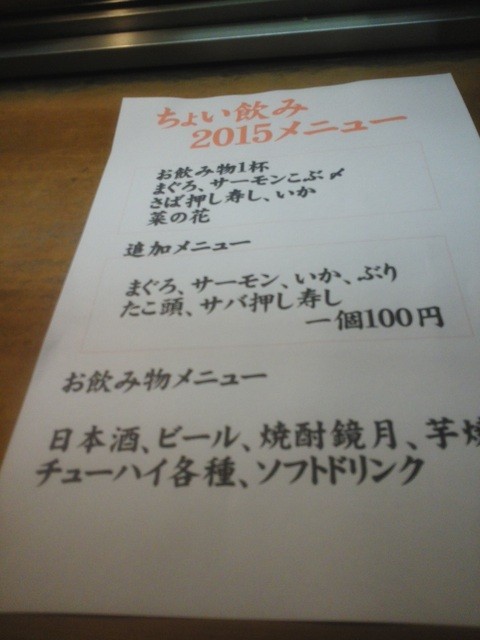 ちょい飲み
2015メニュー
お飲み物1杯
まぐろ、サーモンこぶ〆
さば押し寿し、いか
菜の花
追加メニュー
まぐろ、サーモン、いか、ぶり
たこ頭、サバ押し寿し
一個100円
お飲み物メニュー
日本酒、ビール、焼酎鏡月、芋焼
チューハイ各種、ソフトドリンク